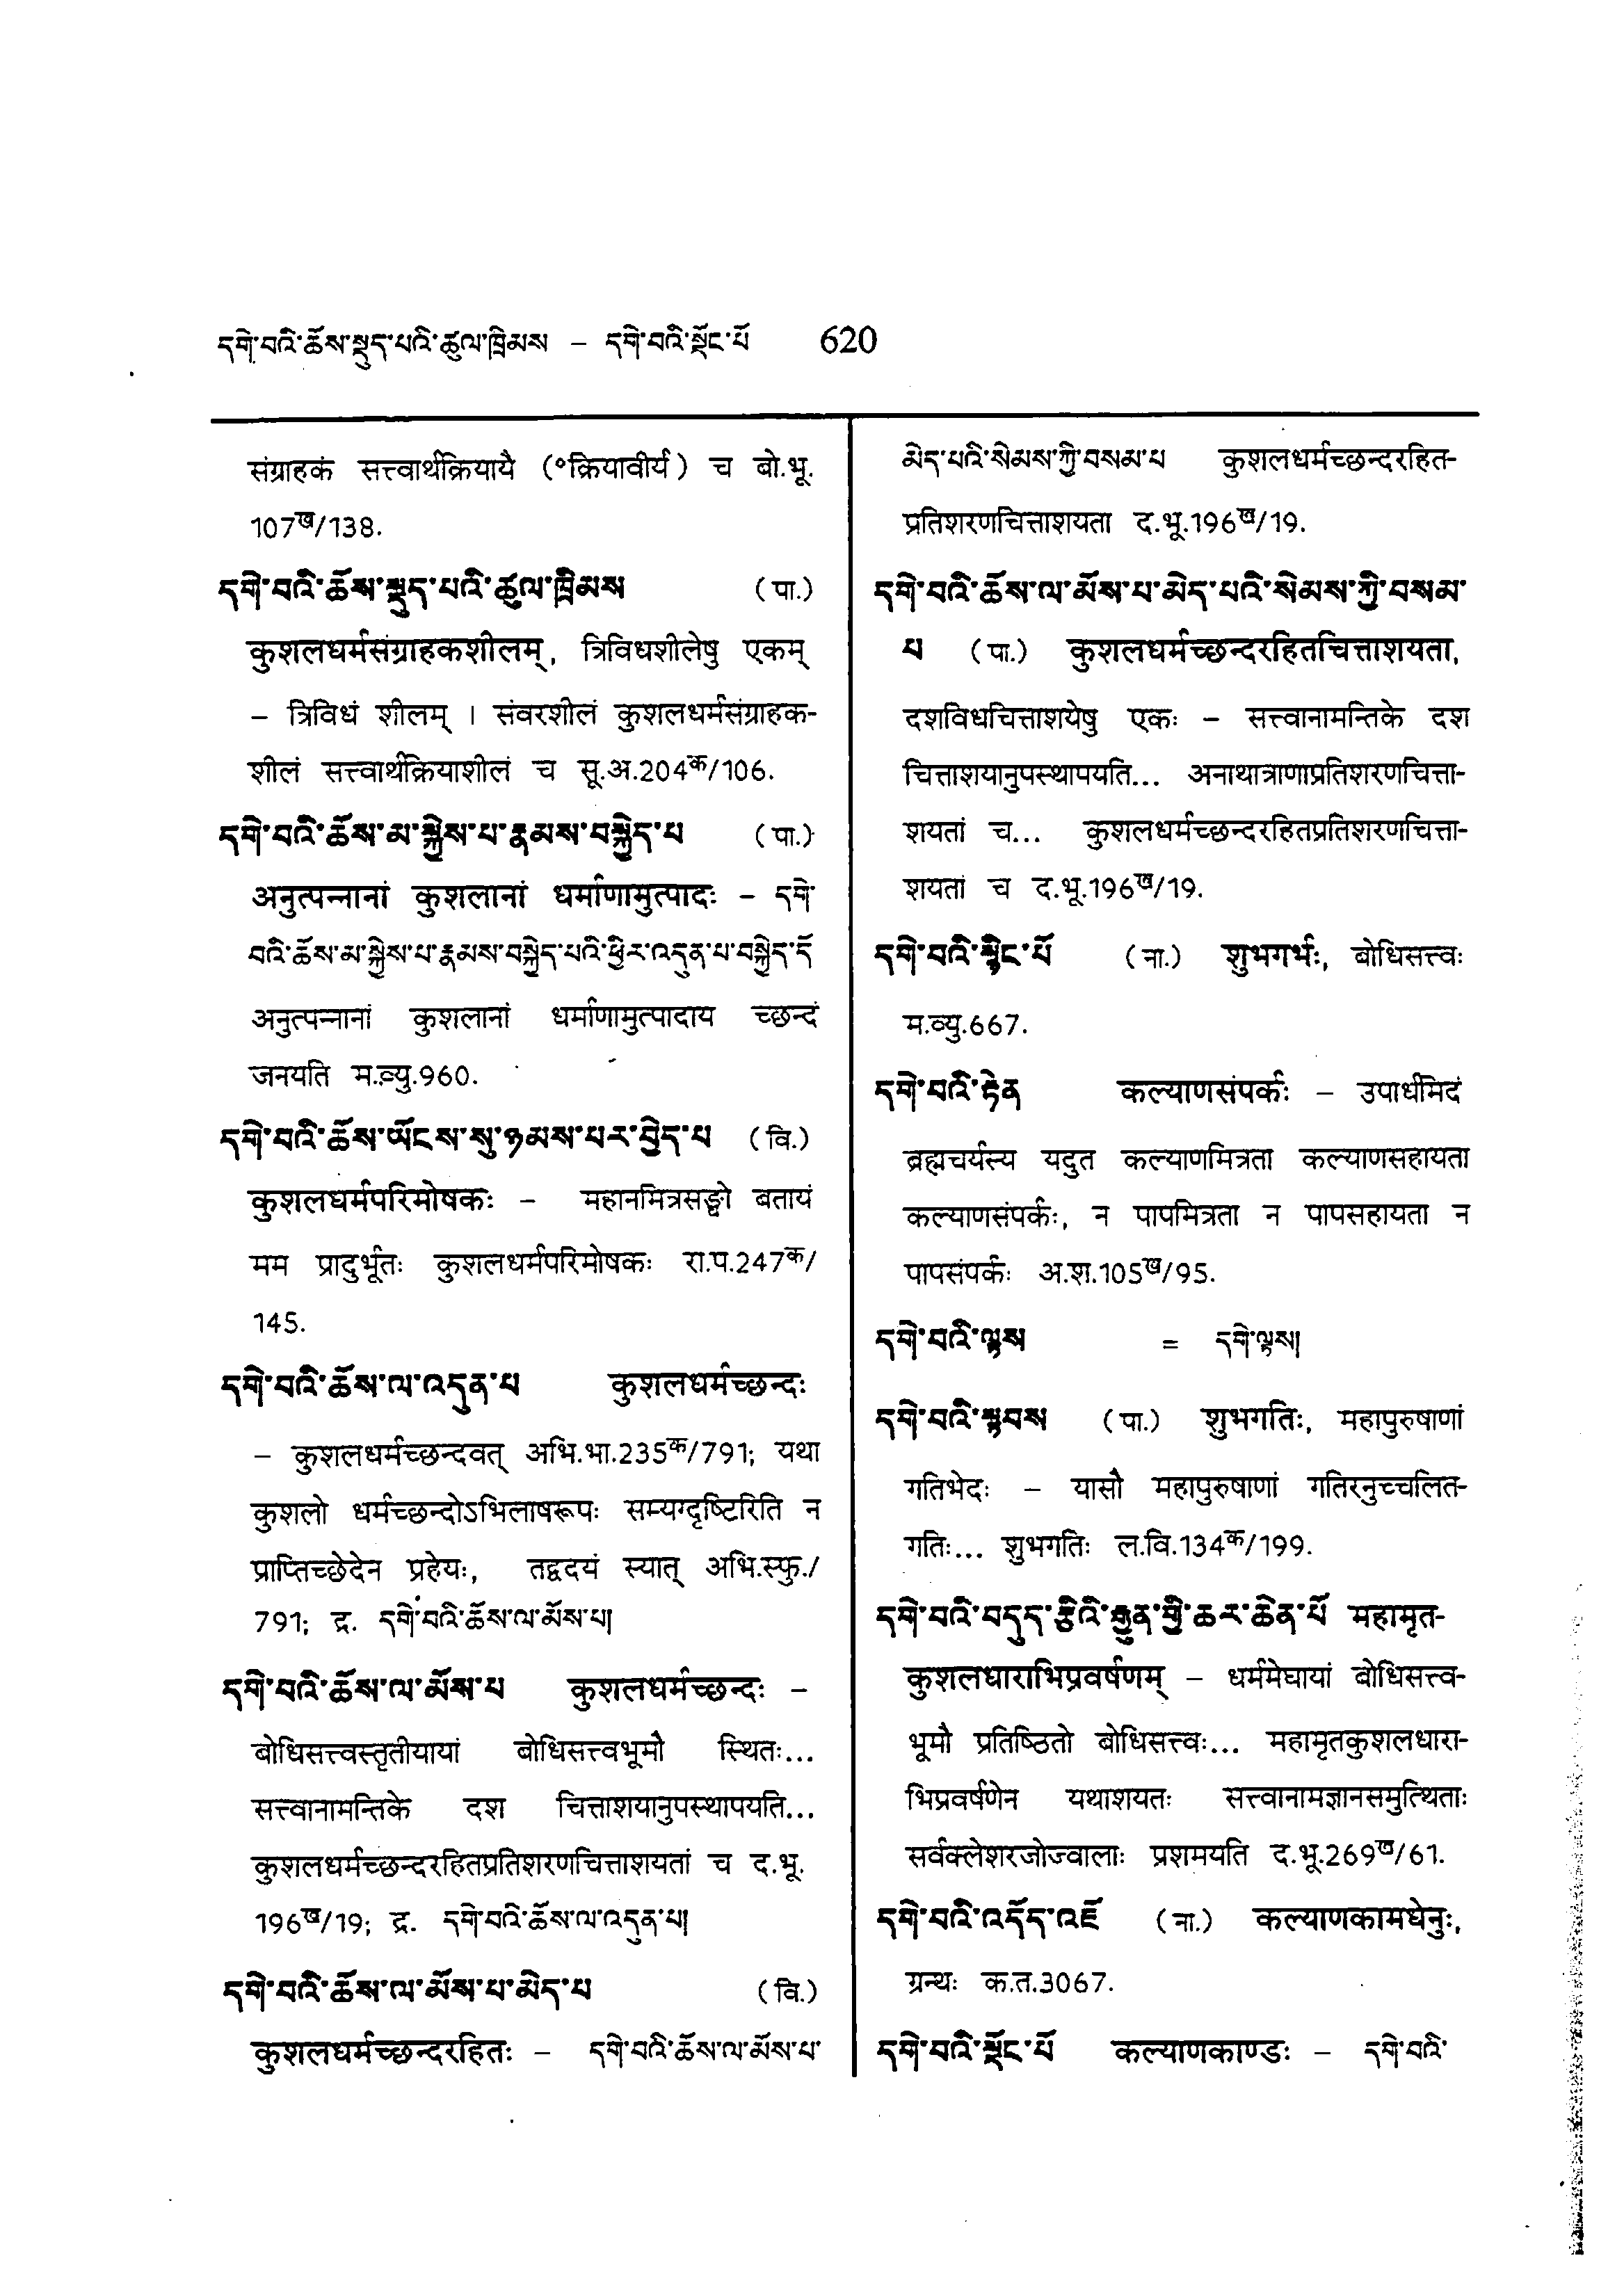 དགེ་བའི་ཆོས་སྡུད་པའི་ཚུལ་ཁྲིམས – དགེ་བའི་སྡོང་པོ 620
संग्राहकं सत्त्वार्थक्रियायै (°क्रियावीर्यं) च बो.भू.
107ख/138.
དགེ་བའི་ཆོས་སྡུད་པའི་ཚུལ་ཁྲིམས (पा.)
कुशलधर्मसंग्राहकशीलम्, त्रिविधशीलेषु एकम्
– त्रिविधं शीलम् । संवरशीलं कुशलधर्मसंग्राहक-
शीलं सत्त्वार्थक्रियाशीलं च सू.अ.204क/106.
དགེ་བའི་ཆོས་མ་སྐྱེས་པ་རྣམས་བསྐྱེད་པ (पा.)
अनुत्पन्नानां कुशलानां धर्माणामुत्पादः – དགེ་
བའི་ཆོས་མ་སྐྱེས་པ་རྣམས་བསྐྱེད་པའི་ཕྱིར་འདུན་པ་བསྐྱེད་དོ
अनुत्पन्नानां कुशलानां धर्माणामुत्पादाय च्छन्दं
जनयति म.व्यु.960.
དགེ་བའི་ཆོས་ཡོངས་སུ་ཉམས་པར་བྱེད་པ (वि.)
कुशलधर्मपरिमोषकः – महानमित्रसङ्घो बतायं
मम प्रादुर्भूतः कुशलधर्मपरिमोषकः रा.प.247क/
145.
དགེ་བའི་ཆོས་ལ་འདུན་པ कुशलधर्मच्छन्दः
– कुशलधर्मच्छन्दवत् अभि.भा.235क/791; यथा
कुशलो धर्मच्छन्दोऽभिलाषरूपः सम्यग्दृष्टिरिति न
प्राप्तिच्छेदेन प्रहेयः, तद्वदयं स्यात् अभि.स्फु./
791; द्र. དགེ་བའི་ཆོས་ལ་མོས་པ།
དགེ་བའི་ཆོས་ལ་མོས་པ कुशलधर्मच्छन्दः –
बोधिसत्त्वस्तृतीयायां बोधिसत्त्वभूमौ स्थितः...
सत्त्वानामन्तिके दश चित्ताशयानुपस्थापयति...
कुशलधर्मच्छन्दरहितप्रतिशरणचित्ताशयतां च द.भू.
196ख/19; द्र. དགེ་བའི་ཆོས་ལ་འདུན་པ།
དགེ་བའི་ཆོས་ལ་མོས་པ་མེད་པ (वि.)
कुशलधर्मच्छन्दरहितः – དགེ་བའི་ཆོས་ལ་མོས་པ་
མེད་པའི་སེམས་ཀྱི་བསམ་པ कुशलधर्मच्छन्दरहित-
प्रतिशरणचित्ताशयता द.भू.196ख/19.
དགེ་བའི་ཆོས་ལ་མོས་པ་མེད་པའི་སེམས་ཀྱི་བསམ་
པ (पा.) कुशलधर्मच्छन्दरहितचित्ताशयता,
दशविधचित्ताशयेषु एकः – सत्त्वानामन्तिके दश
चित्ताशयानुपस्थापयति... अनाथात्राणाप्रतिशरणचित्ता-
शयतां च... कुशलधर्मच्छन्दरहितप्रतिशरणचित्ता-
शयतां च द.भू.196ख/19.
དགེ་བའི་སྙིང་པོ (ना.) शुभगर्भः, बोधिसत्त्वः
म.व्यु.667.
དགེ་བའི་རྟེན कल्याणसंपर्कः – उपार्धमिदं
ब्रह्मचर्यस्य यदुत कल्याणमित्रता कल्याणसहायता
कल्याणसंपर्कः, न पापमित्रता न पापसहायता न
पापसंपर्कः अ.श.105ख/95.
དགེ་བའི་ལྟས = དགེ་ལྟས།
དགེ་བའི་སྟབས (पा.) शुभगतिः, महापुरुषाणां
गतिभेदः – यासौ महापुरुषाणां गतिरनुच्चलित-
गतिः... शुभगतिः ल.वि.134क/199.
དགེ་བའི་བདུད་རྩིའི་རྒྱུན་གྱི་ཆར་ཆེན་པོ महामृत-
कुशलधाराभिप्रवर्षणम् – धर्ममेघायां बोधिसत्त्व-
भूमौ प्रतिष्ठितो बोधिसत्त्वः... महामृतकुशलधारा-
भिप्रवर्षणेन यथाशयतः सत्त्वानामज्ञानसमुत्थिताः
सर्वक्लेशरजोज्वालाः प्रशमयति द.भू.269ख/61.
དགེ་བའི་འདོད་འཇོ (ना.) कल्याणकामधेनुः,
ग्रन्थः क.त.3067.
དགེ་བའི་སྡོང་པོ कल्याणकाण्डः – དགེ་བའི་